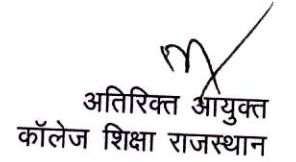 अतिरिक्त आयुक्त
कॉलेज शिक्षा राजस्थान